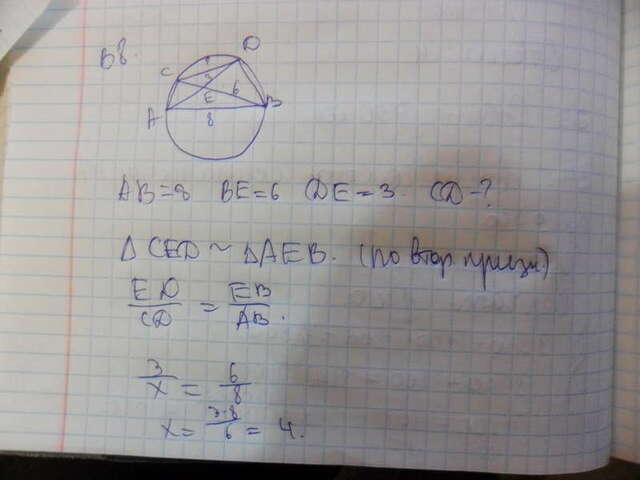 D
C
6
E
A
B
8
AB=8 BE=6 DE=3 CD-?
Δ CED ~ ΔAEB. (по втор призн)
ED/CD = EB/AB.
3/x = 6/8
x = 3·8/6 = 4.